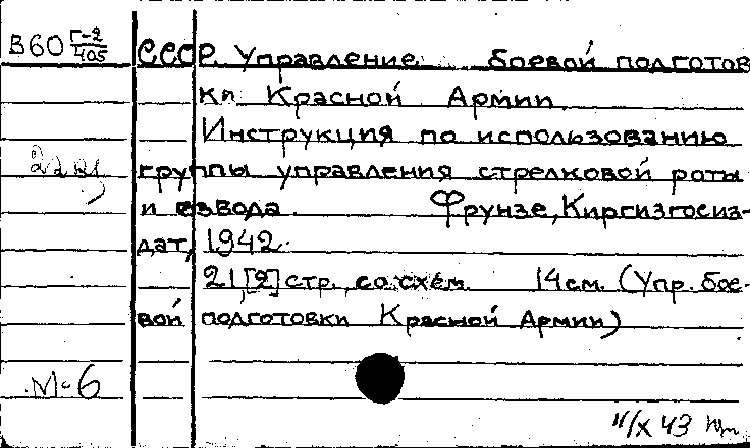 В60 Г-2/405 СССР. Управление боевой подготов
ки Красной Армии.
Инструкция по использованию
группы управления стрелковой роты
и взвода. Фрунзе, Киргизгосиз-
дат, 1942.
21,[2] стр., со схем. 14 см. (Упр. бое-
вой подготовки Красной Армии)
М-6
11/X 43